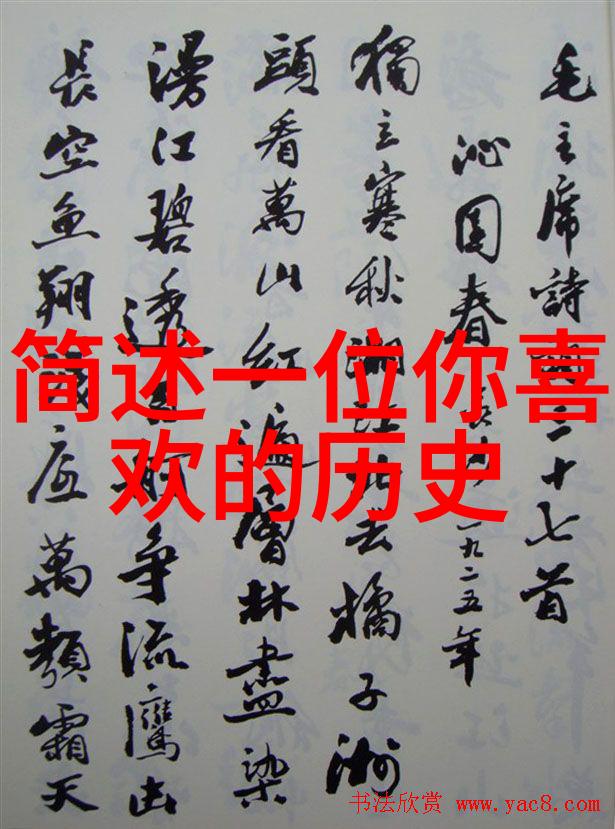 毛主席詩詞三十七首
沁園春 長沙 一九二五年
獨立寒秋湘江北去橘子洲
頭看萬山红遍層林盡染
漫江碧透百舸争流鷹击
長空魚翔浅底萬類霜天
简述一位你喜
欢的历史
书法欣赏 www.yac8.com